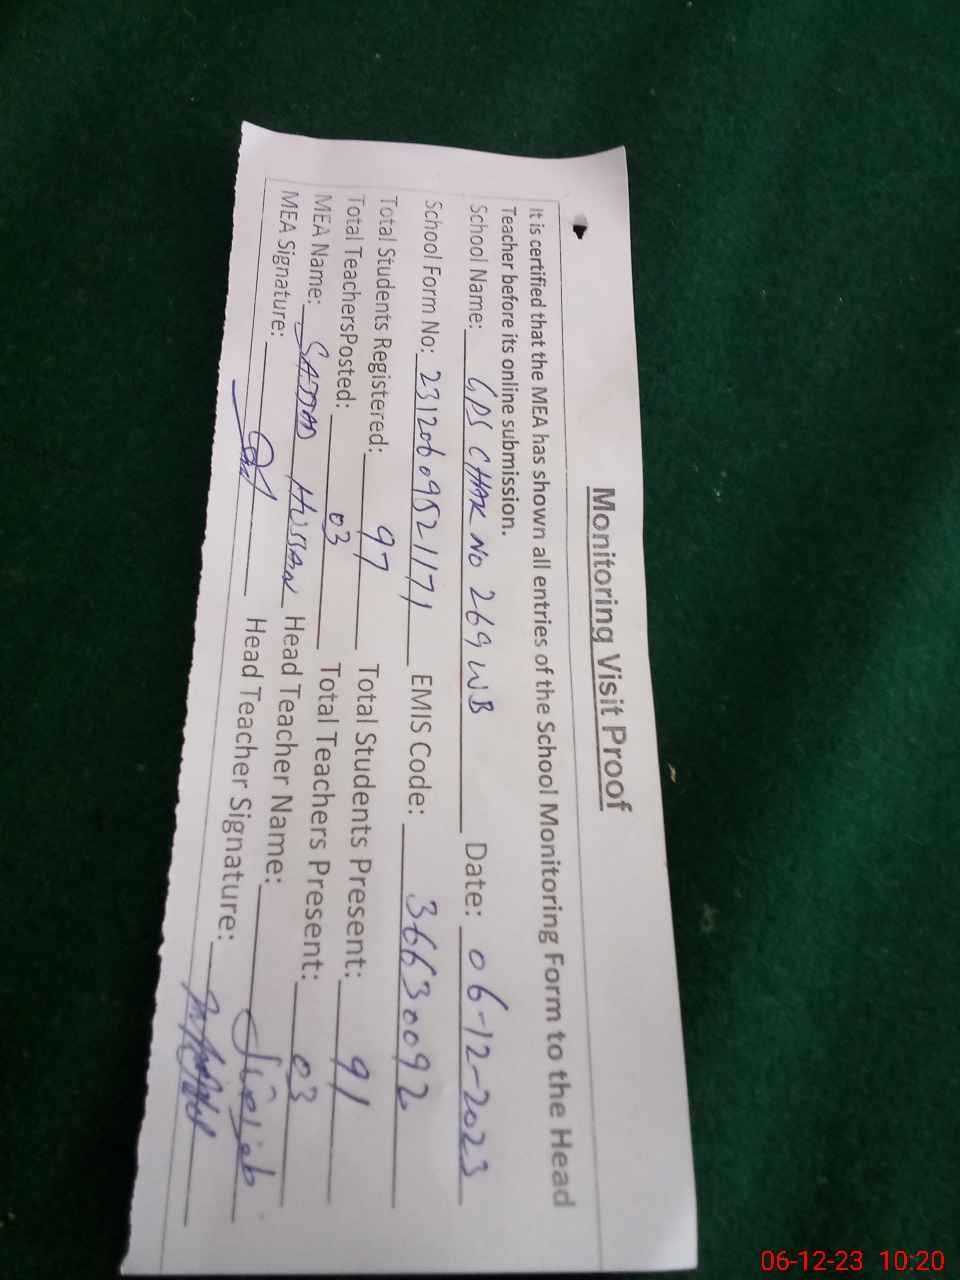 Monitoring Visit Proof
It is certified that the MEA has shown all entries of the School Monitoring Form to the Head
Teacher before its online submission.
School Name: GPS CHAK NO 269 WB Date: 06-12-2023
School Form No: 23120609521171 EMIS Code: 36630092
Total Students Registered: 97 Total Students Present: 91
Total TeachersPosted: 03 Total Teachers Present: 03
MEA Name: SAJJAD HUSSAIN Head Teacher Name:
MEA Signature: Head Teacher Signature:
06-12-23 10:20